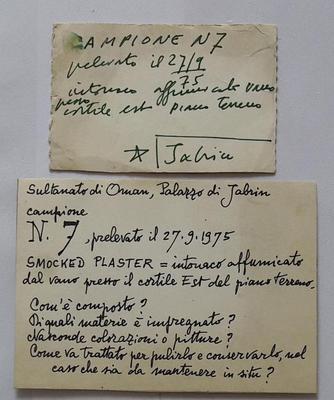 CAMPIONE N7
prelevato il 27/9
75
intonaco affumicato vano
presso
cortile est piano terreno
Jabrin
Sultanato di Oman, Palazzo di Jabrin
campione
N. 7, prelevato il 27.9.1975
SMOCKED PLASTER = intonaco affumicato
dal vano presso il cortile Est del piano terreno.
Com'è composto?
Di quali materie è impregnato?
Nasconde colorazioni o pitture?
Come va trattato per pulirlo e conservarlo, nel
caso che sia da mantenere in situ?